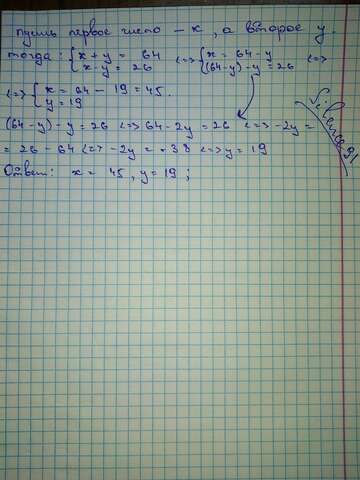 пусть первое число – x, а второе y.
тогда: { x + y = 64 <=> { x = 64 - y
x - y = 26 (64-y) - y = 26 <=>
<=> { x = 64 - 19 = 45.
y = 19
(64-y) - y = 26 <=> 64 - 2y = 26 <=> -2y =
= 26 - 64 <=> -2y = -38 <=> y = 19
Ответ: x = 45, y = 19;